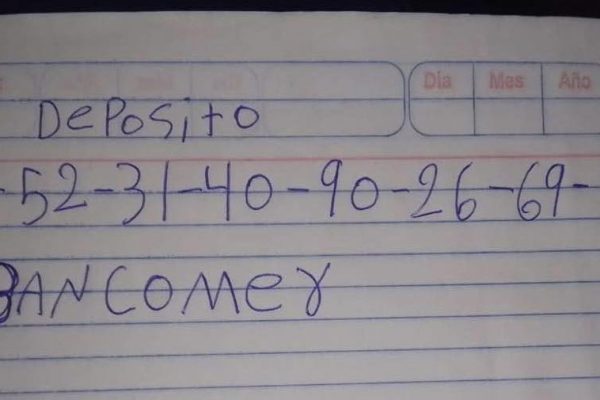 Dia Mes Año
DePosito
-52-31-40-90-26-69-
BANCOMer